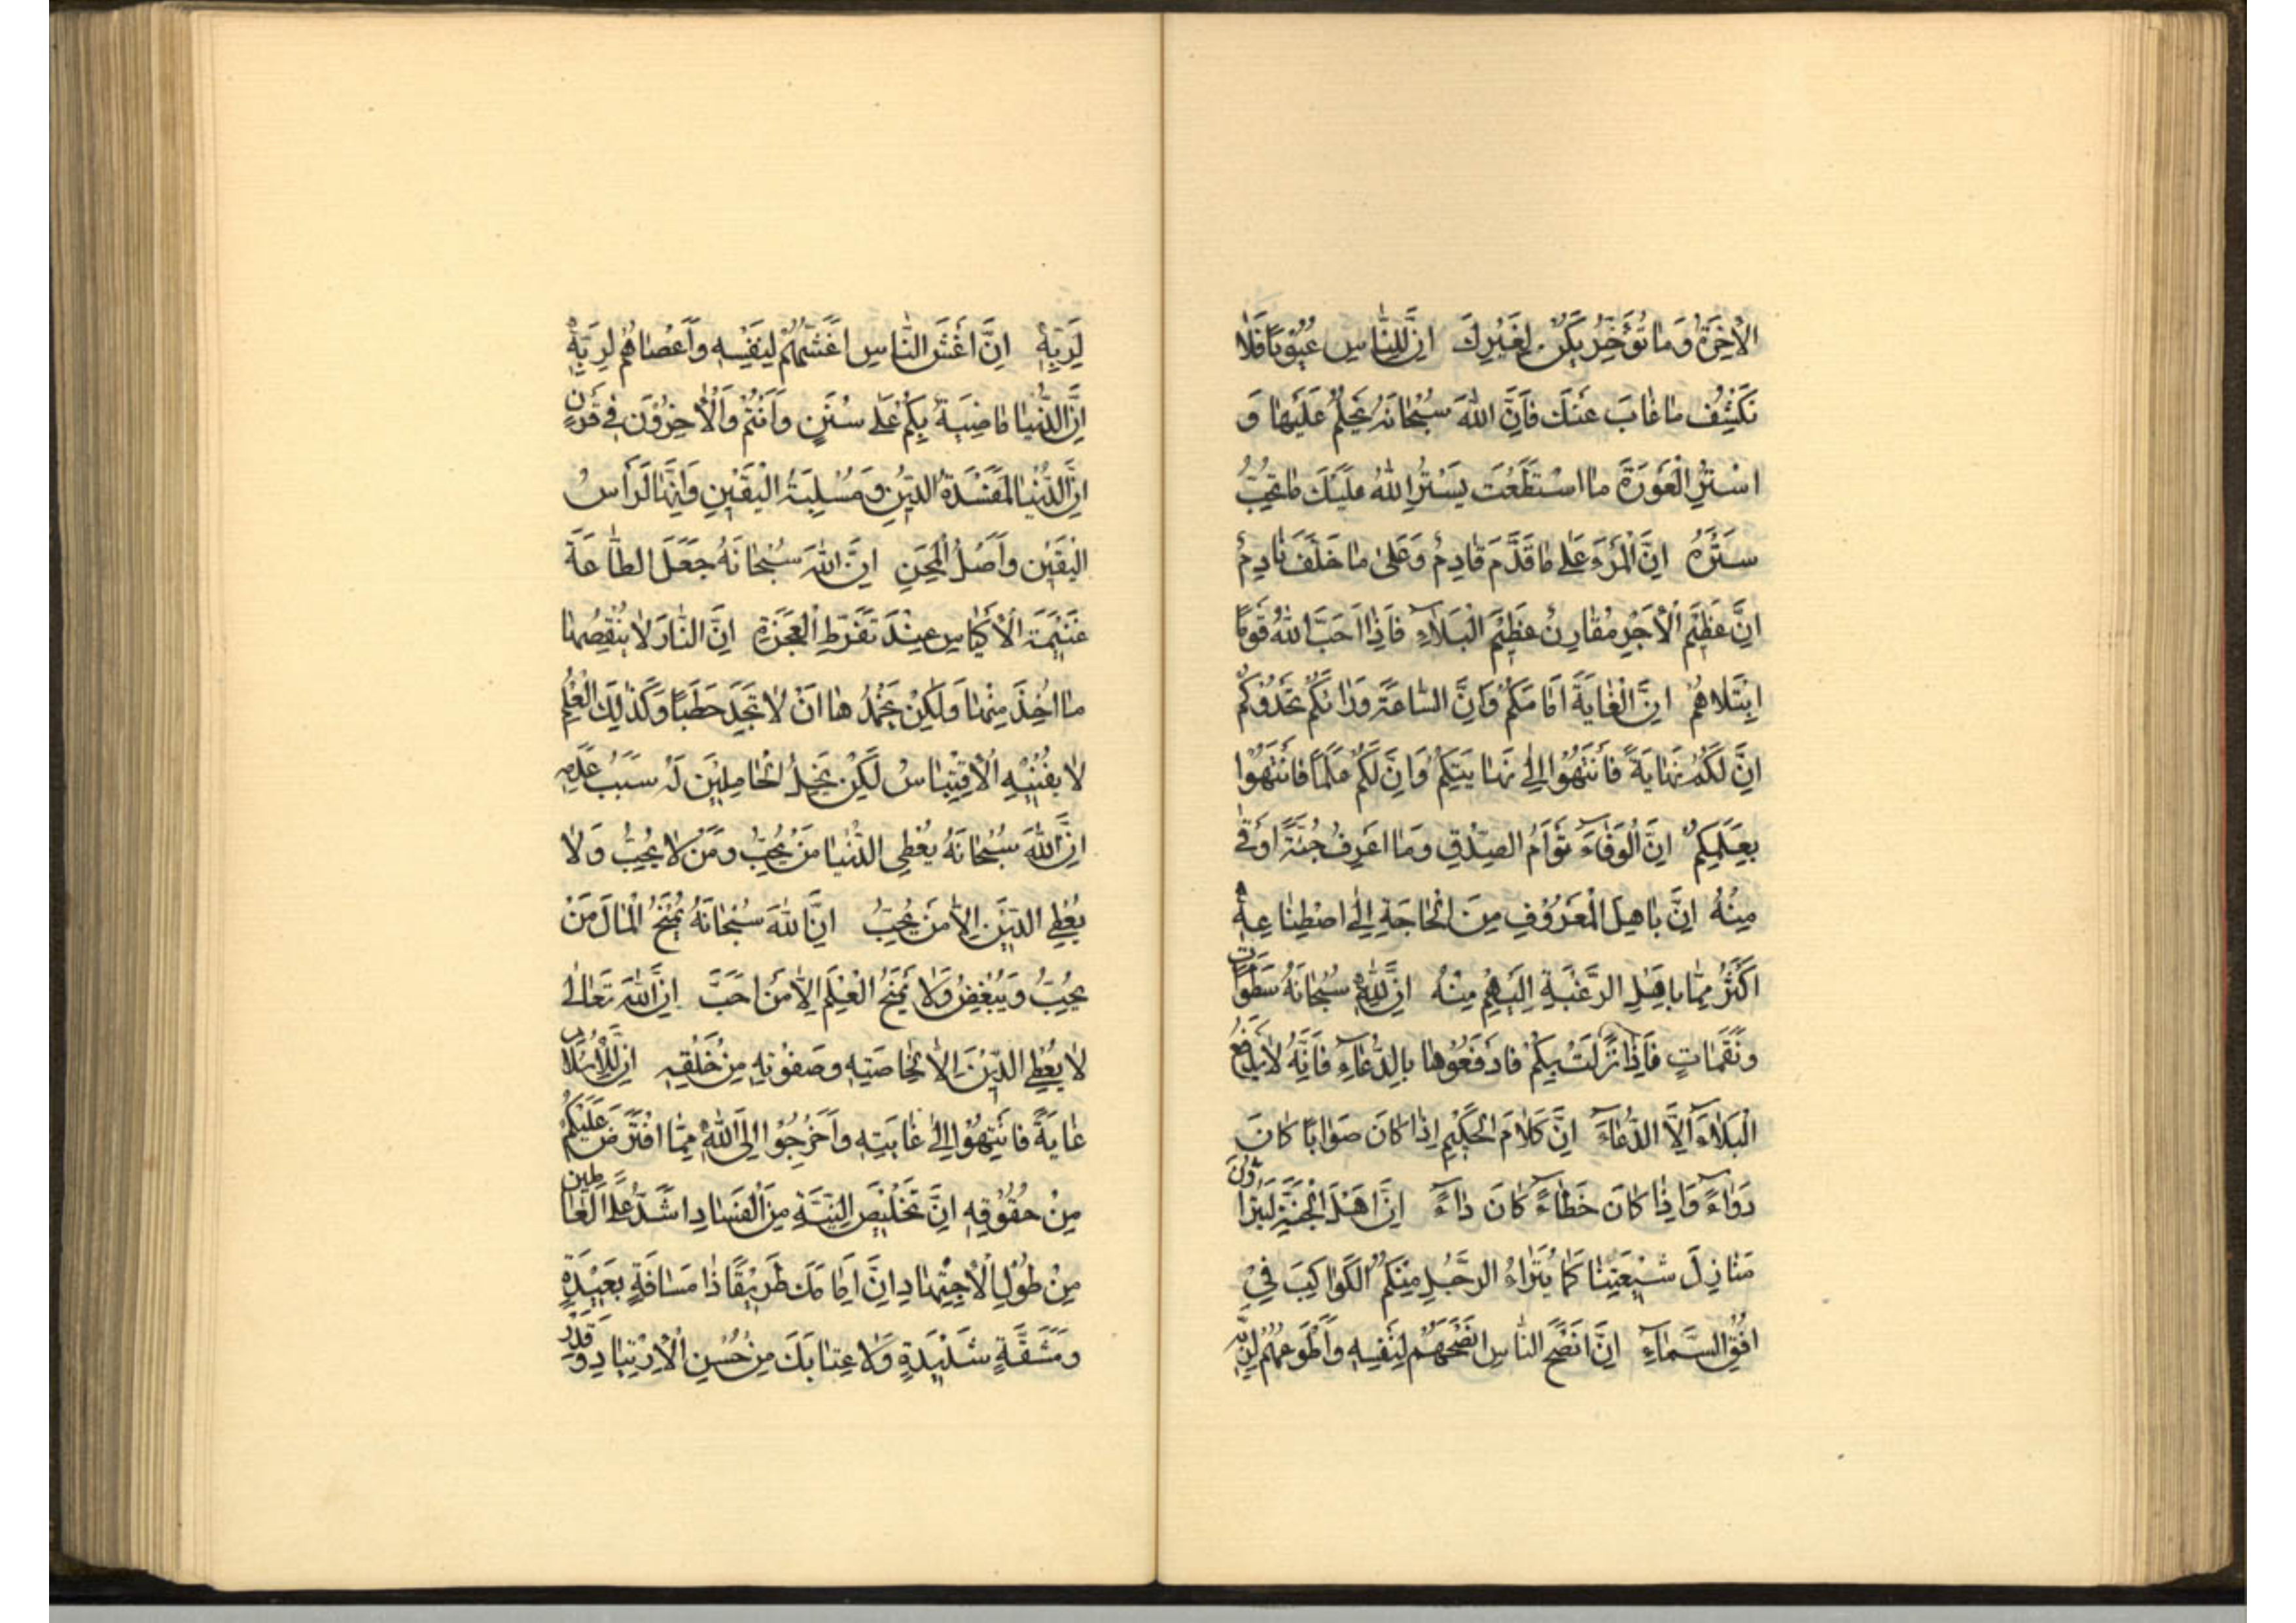 الْاٰخِرَةُ وَمَا تُؤَخِّرُ يَكُنْ لِغَيْرِكَ اِنَّ لِلنَّاسِ عُيُوْبًا فَلَا
تَكْشِفْ مَا غَابَ عَنْكَ فَاِنَّ اللّٰهَ سُبْحَانَهُ يَحْلُمُ عَلَيْهَا وَ
اسْتُرِ الْعَوْرَةَ مَا اسْتَطَعْتَ يَسْتُرِ اللّٰهُ عَلَيْكَ مَا تُحِبُّ
سَتْرَهُ اِنَّ الْمَرْءَ عَلٰى مَا قَدَّمَ قَادِمٌ وَعَلٰى مَا خَلَّفَ نَادِمٌ
اِنَّ عَظِيْمَ الْاَجْرِ مُقَارِنُ عَظِيْمِ الْبَلَآءِ فَاِذَا اَحَبَّ اللّٰهُ قَوْمًا
ابْتَلَاهُمْ اِنَّ الْغَايَةَ اَمَامَكُمْ وَاِنَّ السَّاعَةَ وَرَائَكُمْ تَحْدُوْكُمْ
اِنَّ لَكُمْ نِهَايَةً فَانْتَهُوْا اِلٰى نِهَايَتِكُمْ وَاِنَّ لَكُمْ عَلَمًا فَانْتَهُوْا
بِعَلَمِكُمْ اِنَّ الْوَفَآءَ تَوْاَمُ الصِّدْقِ وَمَا اَعْرِفُ جُنَّةً اَوْقٰى
مِنْهُ اِنَّ بِاَهْلِ الْمَعْرُوْفِ مِنَ الْحَاجَةِ اِلٰى اصْطِنَاعِهٖ
اَكْثَرَ مِمَّا بِاَهْلِ الرَّغْبَةِ اِلَيْهِمْ مِنْهُ اِنَّ لِلّٰهِ سُبْحَانَهُ سَطَوَاتٍ
وَنَقَمَاتٍ فَاِذَا نَزَلَتْ بِكُمْ فَادْفَعُوْهَا بِالدُّعَآءِ فَاِنَّهُ لَا يَدْفَعُ
الْبَلَآءَ اِلَّا الدُّعَآءُ اِنَّ كَلَامَ الْحَكِيْمِ اِذَا كَانَ صَوَابًا كَانَ
دَوَآءً وَاِذَا كَانَ خَطَآءً كَانَ دَآءً اِنَّ اَهْلَ الْجَنَّةِ لَيَتَرَاؤُنَ
مَنَازِلَ شِيْعَتِنَا كَمَا يَتَرَاءُ الرَّجُلُ مِنْكُمُ الْكَوَاكِبَ فِيْ
اُفُقِ السَّمَآءِ اِنَّ اَنْصَحَ النَّاسِ اَنْصَحُهُمْ لِنَفْسِهٖ وَاَطْوَعُهُمْ لِرَبِّهٖ
لِرَبِّهٖ اِنَّ اَغَشَّ النَّاسِ اَغَشُّهُمْ لِنَفْسِهٖ وَاَعْصَاهُمْ لِرَبِّهٖ
اِنَّ الدُّنْيَا مَاضِيَةٌ بِكُمْ عَلٰى سُنَنٍ وَاَنْتُمْ وَالْاٰخِرُوْنَ فِيْ قَرَنٍ
اِنَّ الدُّنْيَا لَمَفْسَدَةُ الدِّيْنِ وَمَسْلَبَةُ الْيَقِيْنِ وَاِنَّهَا لَرَاْسُ
الْيَقِيْنِ وَاَصْلُ الْمِحَنِ اِنَّ اللّٰهَ سُبْحَانَهُ جَعَلَ الطَّاعَةَ
غَنِيْمَةَ الْاَكْيَاسِ عِنْدَ تَفَرُّطِ الْعَجَزَةِ اِنَّ النَّارَ لَا يَنْقُصُهَا
مَا اُخِذَ مِنْهَا وَلٰكِنْ يُخْمِدُهَا اَنْ لَا تَجِدَ حَطَبًا وَكَذٰلِكَ الْعِلْمُ
لَا يُفْنِيْهِ الْاِقْتِبَاسُ لٰكِنْ بُخْلُ الْحَامِلِيْنَ لَهُ سَبَبُ عَدَمِهٖ
اِنَّ اللّٰهَ سُبْحَانَهُ يُعْطِى الدُّنْيَا مَنْ يُحِبُّ وَمَنْ لَا يُحِبُّ وَلَا
يُعْطِى الدِّيْنَ اِلَّا مَنْ يُحِبُّ اِنَّ اللّٰهَ سُبْحَانَهُ يَمْنَحُ الْمَالَ مَنْ
يُحِبُّ وَيُبْغِضُ وَلَا يَمْنَحُ الْعِلْمَ اِلَّا مَنْ اَحَبَّ اِنَّ اللّٰهَ تَعَالٰى
لَا يُعْطِى الدِّيْنَ اِلَّا لِخَاصَّتِهٖ وَصَفْوَتِهٖ مِنْ خَلْقِهٖ اِنَّ لِلْاِسْلَامِ
غَايَةً فَانْتَهُوْا اِلٰى غَايَتِهٖ وَاخْرُجُوْا اِلَى اللّٰهِ مِمَّا افْتَرَضَ عَلَيْكُمْ
مِنْ حُقُوْقِهٖ اِنَّ تَخْلِيْصَ النِّيَّةِ مِنَ الْفَسَادِ اَشَدُّ عَلَى الْعَامِلِيْنَ
مِنْ طُوْلِ الْاِجْتِهَادِ اِنَّ اَمَامَكَ طَرِيْقًا ذَا مَسَافَةٍ بَعِيْدَةٍ
وَمَشَقَّةٍ شَدِيْدَةٍ وَلَا غِنَا بِكَ مِنْ حُسْنِ الْاِرْتِيَادِ وَقَدْرِ